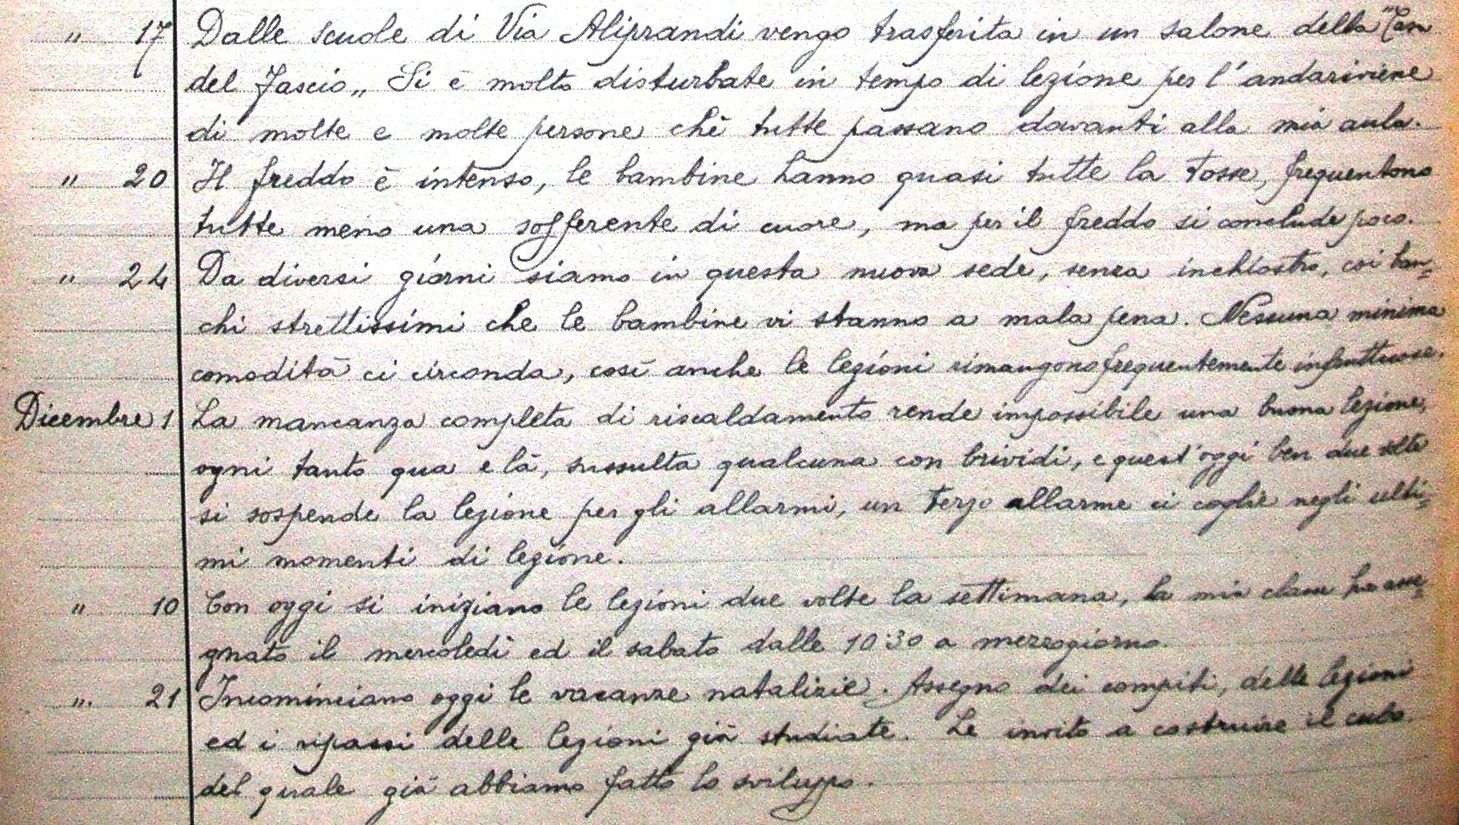 " 17 Dalle scuole di Via Aliprandi vengo trasferita in un salone della "Casa
del Fascio„ Si è molto disturbate in tempo di lezione per l'andariviene
di molte e molte persone chè tutte passano davanti alla mia aula.
" 20 Il freddo è intenso, le bambine hanno quasi tutte la tosse, frequentono
tutte meno una sofferente di cuore, ma per il freddo si conclude poco.
" 24 Da diversi giorni siamo in questa nuova sede, senza inchiostro, coi ban=
chi strettissimi che le bambine vi stanno a mala pena. Nessuna minima
comodità ci circonda, così anche le lezioni rimangono frequentemente infruttuose.
Dicembre 1 La mancanza completa di riscaldamento rende impossibile una buona lezione,
ogni tanto qua e là, sussulta qualcuna con brividi, e quest'oggi ben due volte
si sospende la lezione per gli allarmi, un terzo allarme ci coglie negli ulti=
mi momenti di lezione.
" 10 Con oggi si iniziano le lezioni due volte la settimana, la mia classe ha asse=
gnato il mercoledì ed il sabato dalle 10:30 a mezzogiorno.
" 21 Incominciano oggi le vacanze natalizie. Assegno dei compiti, delle lezioni
ed i ripassi delle lezioni già studiate. Le invito a costruire il cubo
del quale già abbiamo fatto lo sviluppo.